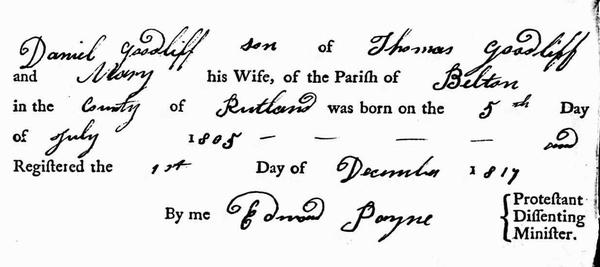 Daniel Goodliff son of Thomas Goodliff
and Mary his Wife, of the Pariſh of Belton
in the County of Rutland was born on the 5th Day
of July 1805 — — — — and
Regiſtered the 1st Day of December 1817
By me Edmond Payne { Proteſtant
Diſſenting
Miniſter.